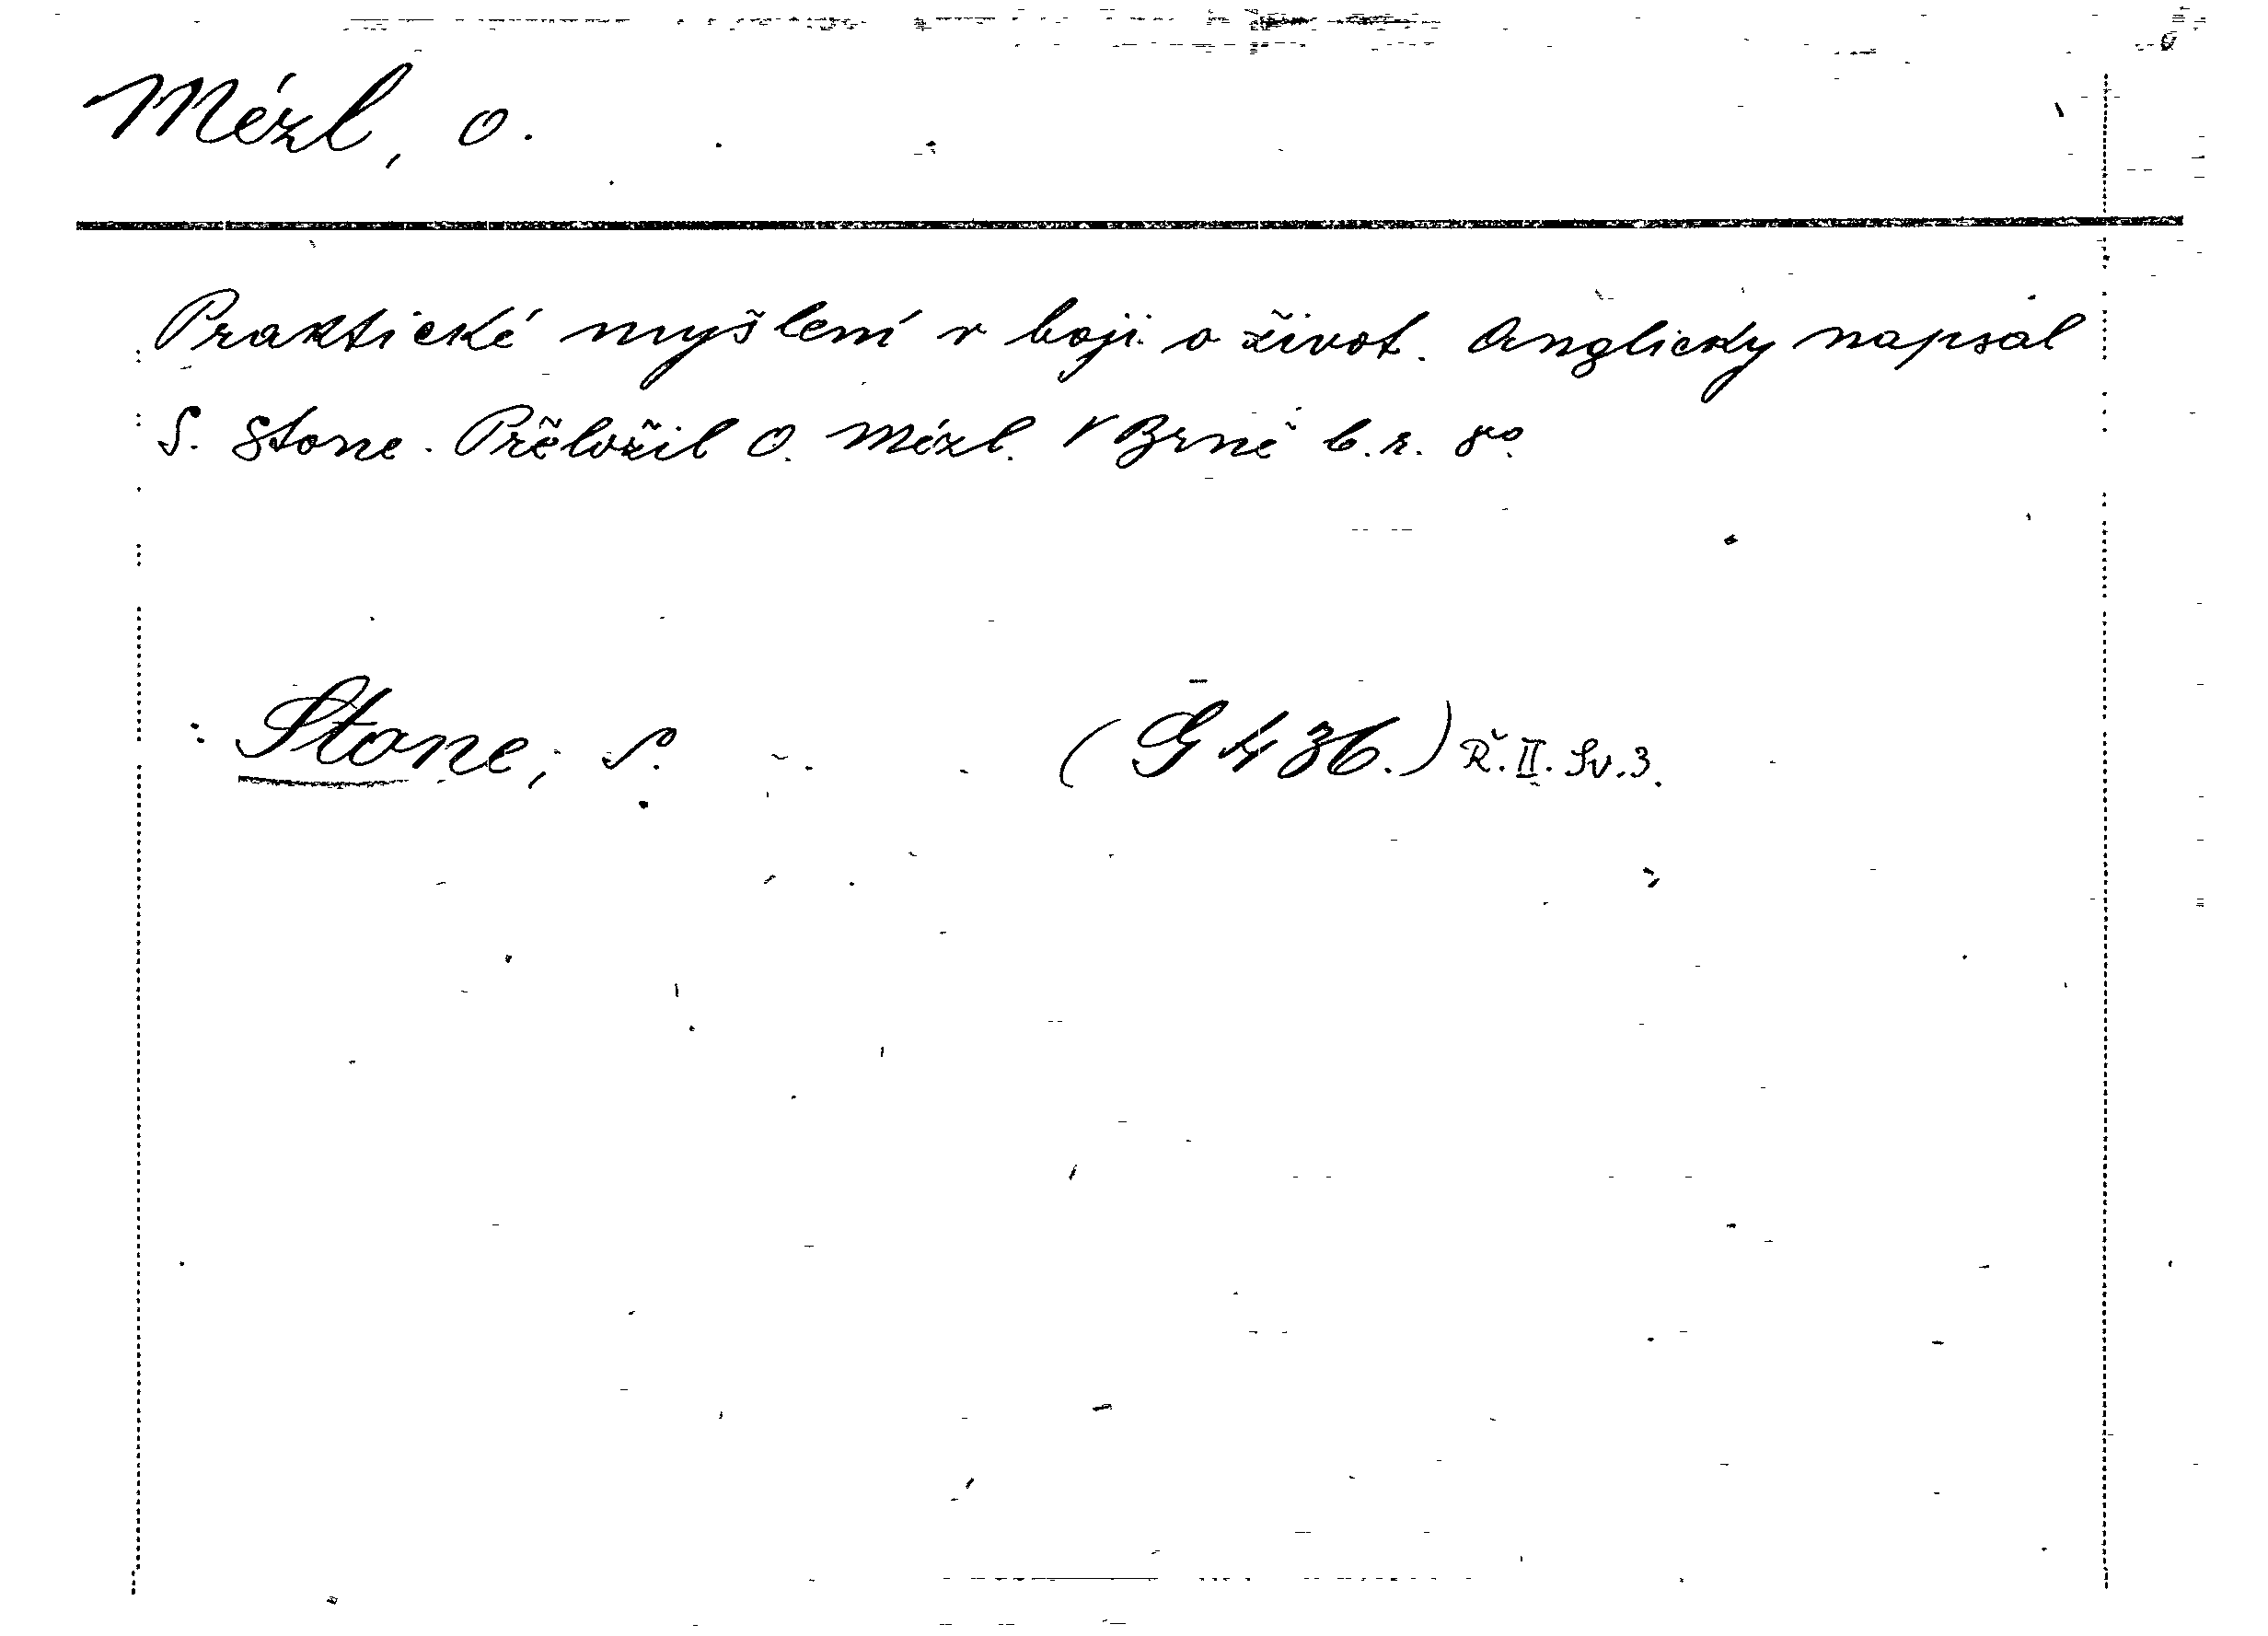 Mézl, O.
Praktické myšlení v boji o život. Anglicky napsal
S. Stone. Přeložil O. Mézl. V Brně b.r. 8º.
: Stone, S. (G 436.) Ř. II. Sv. 3.